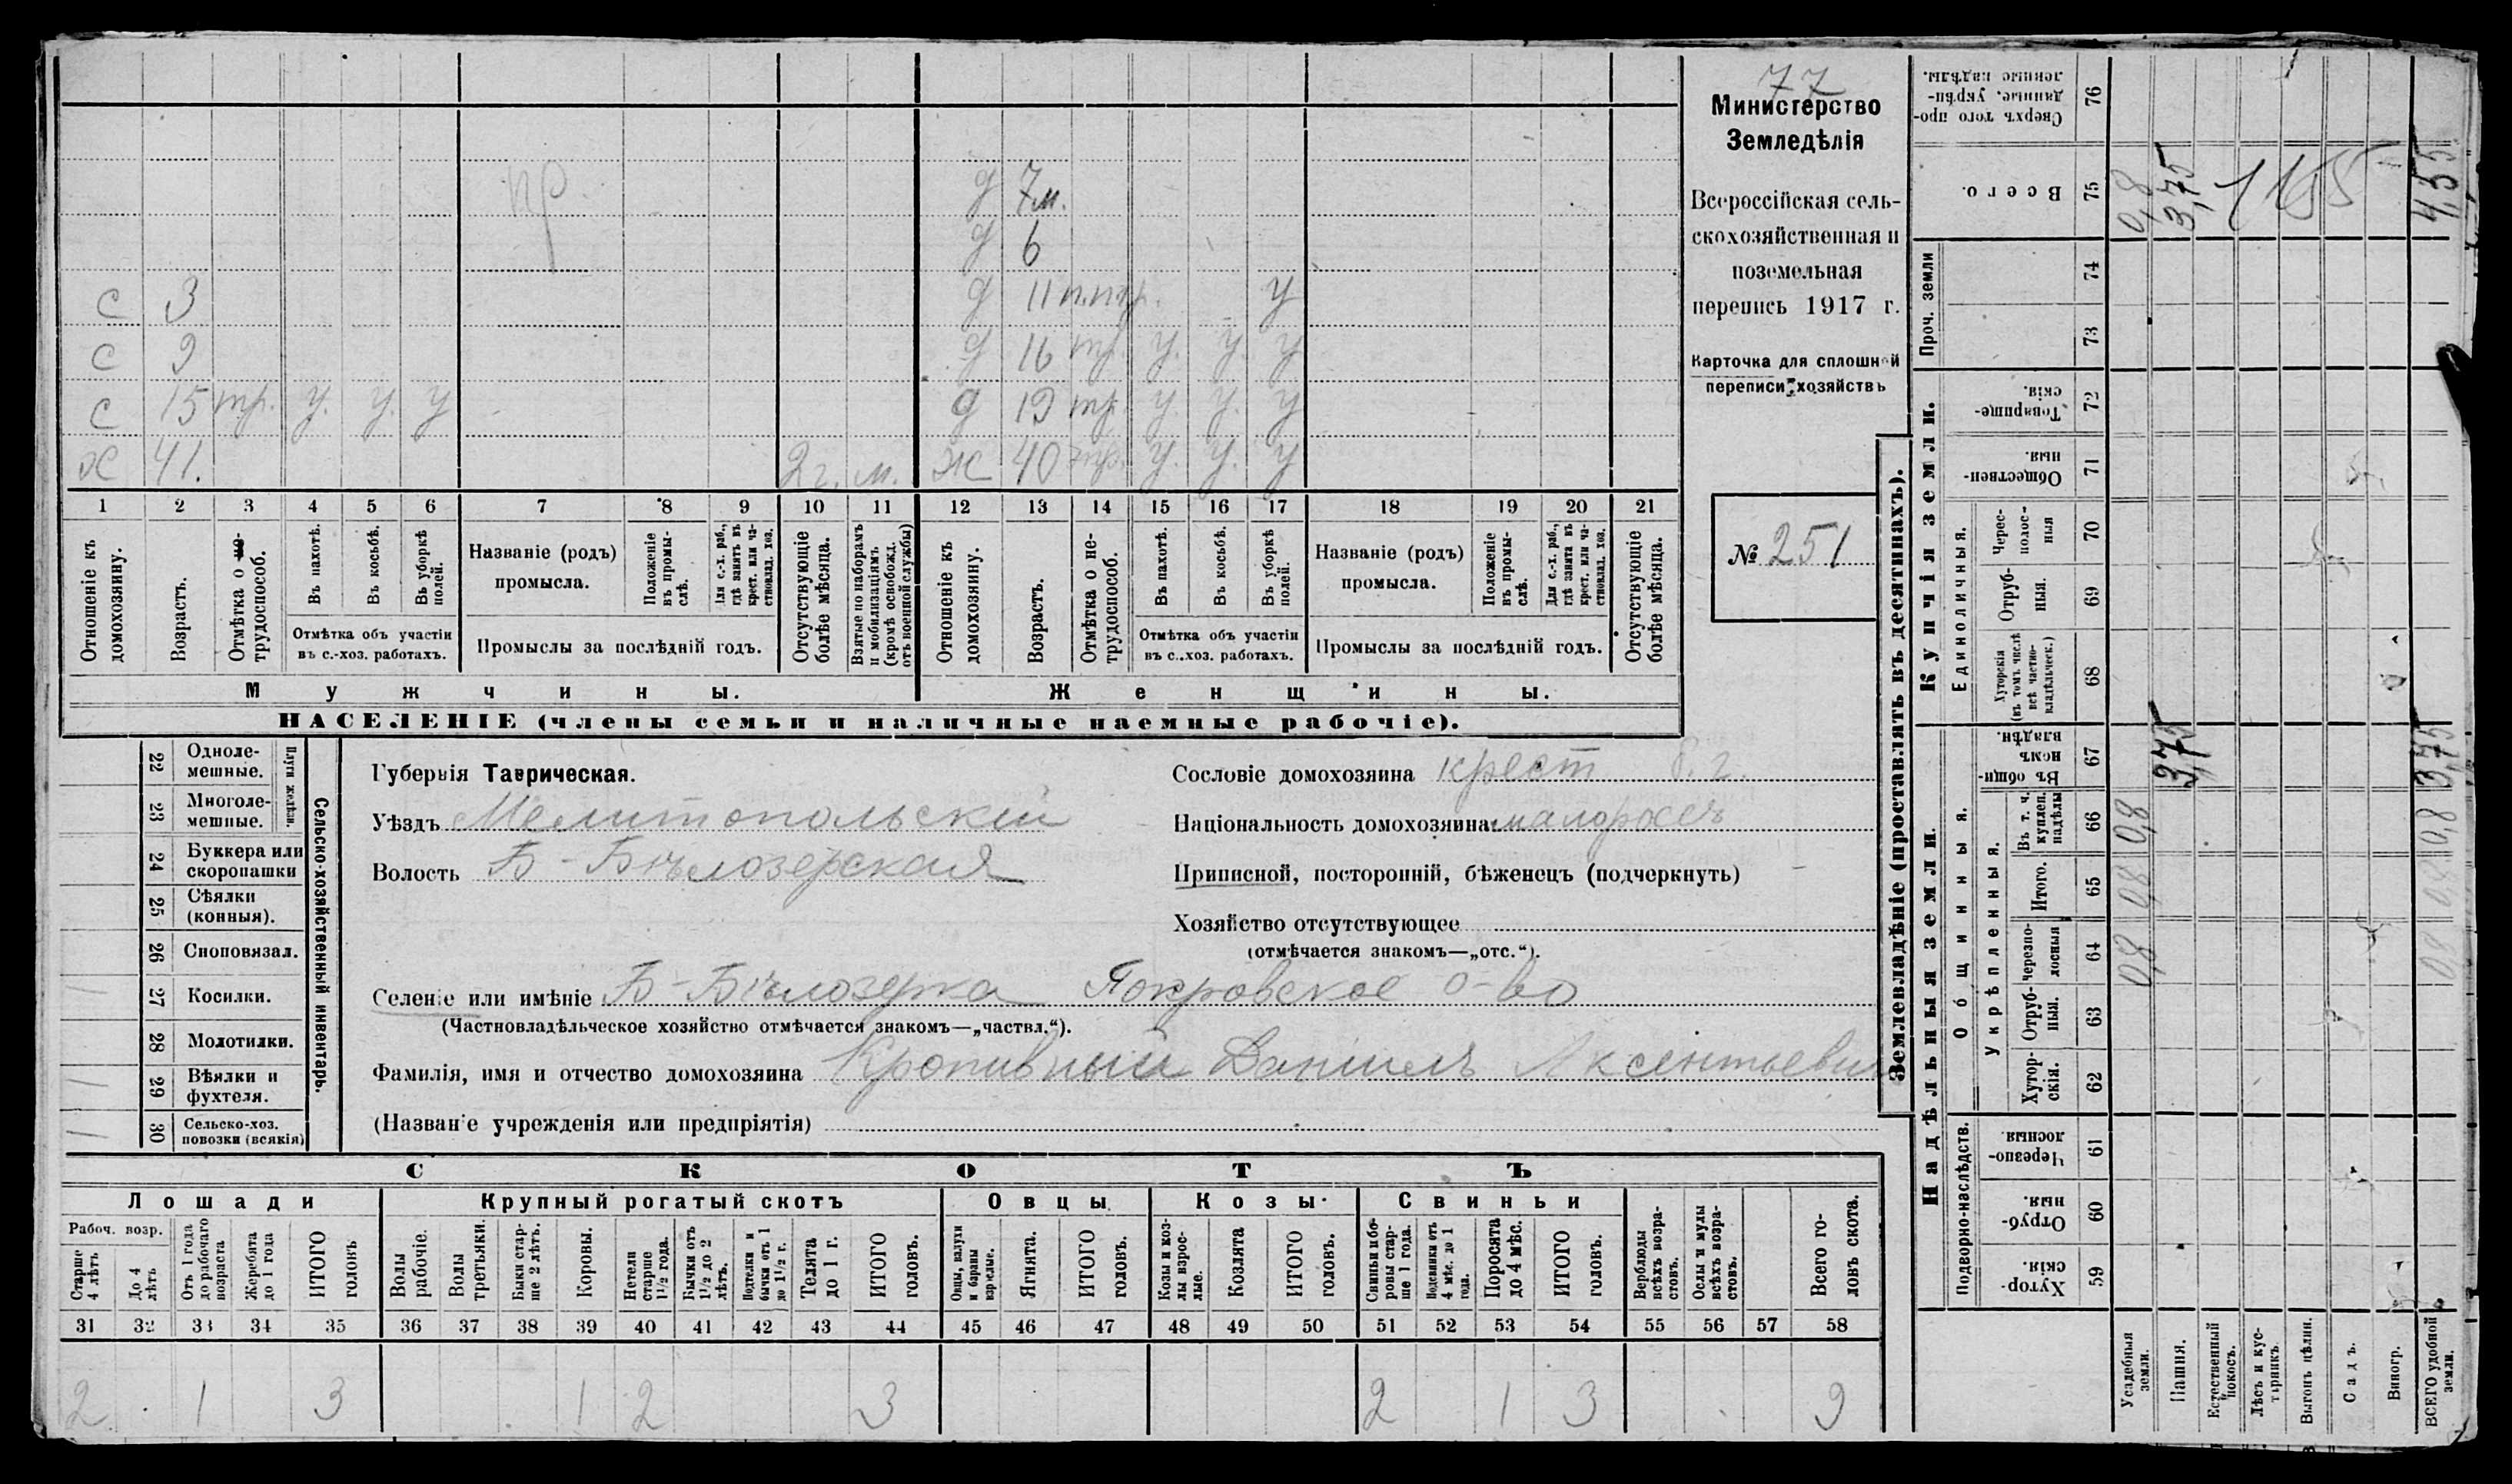 77
Министерство
Земледѣлія
Всероссійская сель-
скохозяйственная и
поземельная
перепись 1917 г.
Карточка для сплошной
переписи хозяйствъ
№ 251
пр
д 7м.
д 6
с 3 д 11 п.тр. у
с 9 д 16 тр. у. у. у
с 15 тр. у. у. у д 19 тр. у. у. у
х 41. 2 г. м. ж 40 тр. у. у. у
1 2 3 4 5 6 7 8 9 10 11 12 13 14 15 16 17 18 19 20 21
Отношеніе къ домохозяину.
Возрастъ.
Отмѣтка о не-трудоспособ.
Въ пахотѣ.
Въ косьбѣ.
Въ уборкѣ полей.
Отмѣтка объ участіи
въ с.-хоз. работахъ.
Названіе (родъ)
промысла.
Положеніе въ промы-слѣ.
Для с.-х. раб., гдѣ занятъ въ крест. или ча-ствовлад. хоз.
Промыслы за послѣдній годъ.
Отсутствующіе болѣе мѣсяца.
Взятые по наборамъ и мобилизаціямъ (кромѣ освобожд. отъ военной службы)
Отношеніе къ домохозяину.
Возрастъ.
Отмѣтка о не-трудоспособ.
Въ пахотѣ.
Въ косьбѣ.
Въ уборкѣ полей.
Отмѣтка объ участіи
въ с..хоз. работахъ.
Названіе (родъ)
промысла.
Положеніе въ промы-слѣ.
Для с.-х. раб., гдѣ занята въ крест. или ча-ствовлад. хоз.
Промыслы за послѣдній годъ.
Отсутствующіе болѣе мѣсяца.
Мужчины. Женщины.
НАСЕЛЕНІЕ (члены семьи и наличные наемные рабочіе).
Сельско-хозяйственный инвентарь.
Плуги желѣзн.
22 Одноле-мешные.
23 Многоле-мешные.
24 Буккера или скоропашки
25 Сѣялки (конныя).
26 Сноповязал.
1 27 Косилки.
28 Молотилки.
1 29 Вѣялки и фухтеля.
1 30 Сельско-хоз. повозки (всякія)
Губернія Таврическая.
Уѣздъ Мелитопольскій
Волость Б-Бѣлозерская
Сословіе домохозяина крест
Національность домохозяина малороссъ
Приписной, посторонній, бѣженецъ (подчеркнуть)
Хозяйство отсутствующее
(отмѣчается знакомъ—„отс.“).
Селеніе или имѣніе Б-Бѣлозерка Покровское о-во
(Частновладѣльческое хозяйство отмѣчается знакомъ—„частвл.“).
Фамилія, имя и отчество домохозяина Кропивный Даніилъ Аксентьевич
(Названіе учрежденія или предпріятія)
СКОТЪ
Лошади Крупный рогатый скотъ Овцы Козы Свиньи
Рабоч. возр.
Старше 4 лѣтъ
До 4 лѣтъ
Отъ 1 года до рабочаго возраста
Жеребята до 1 года
ИТОГО головъ
Волы рабочіе.
Волы третьяки.
Быки стар-ше 2 лѣтъ.
Коровы.
Нетели старше 1½ года.
Бычки отъ 1½ до 2 лѣтъ.
Подтелки и бычки отъ 1 до 1½ г.
Телята до 1 г.
ИТОГО головъ.
Овцы, валухи и бараны взрослые.
Ягнята.
ИТОГО головъ.
Козы и коз-лы взрос-лые.
Козлята
ИТОГО головъ.
Свиньи и бо-ровы стар-ше 1 года.
Подсвинки отъ 4 мѣс. до 1 года.
Поросята до 4 мѣс.
ИТОГО головъ.
Верблюды всѣхъ возра-стовъ.
Ослы и мулы всѣхъ возра-стовъ.
Всего го-ловъ скота.
31 32 33 34 35 36 37 38 39 40 41 42 43 44 45 46 47 48 49 50 51 52 53 54 55 56 57 58
2 1 3 1 2 3 2 1 3 9
Землевладѣніе (проставлять въ десятинахъ).
Купчія земли.
Надѣльныя земли.
Сверхъ того про-данные, укрѣп-ленные надѣлы. 76
Всего. 75 0,8 3,75 4,55
Проч. земли 74 73
Товарище-скія. 72
Обществен-ныя. 71
Единоличныя.
Черес-полос-ныя 70
Отруб-ныя. 69
Хуторскія (въ томъ числѣ всѣ частно-владѣльческ.) 68
Общинныя.
Въ общи-номъ владѣн. 67 3,75 3,75
Укрѣпленныя.
Въ т. ч. куплен. надѣлы 66 0,8 0,8
Итого. 65 0,8 0,8
черезпо-лосныя 64 0,8 0,8
Отруб-ныя. 63
Хутор-скія. 62
Подворно-наслѣдств.
Черезпо-лосныя 61
Отруб-ныя. 60
Хутор-скія. 59
Усадебныя земли.
Пашня.
Естественный покосъ.
Лѣсъ и кус-тарникъ.
Выгонъ цѣлин.
Садъ.
Виногр.
ВСЕГО удобной земли.